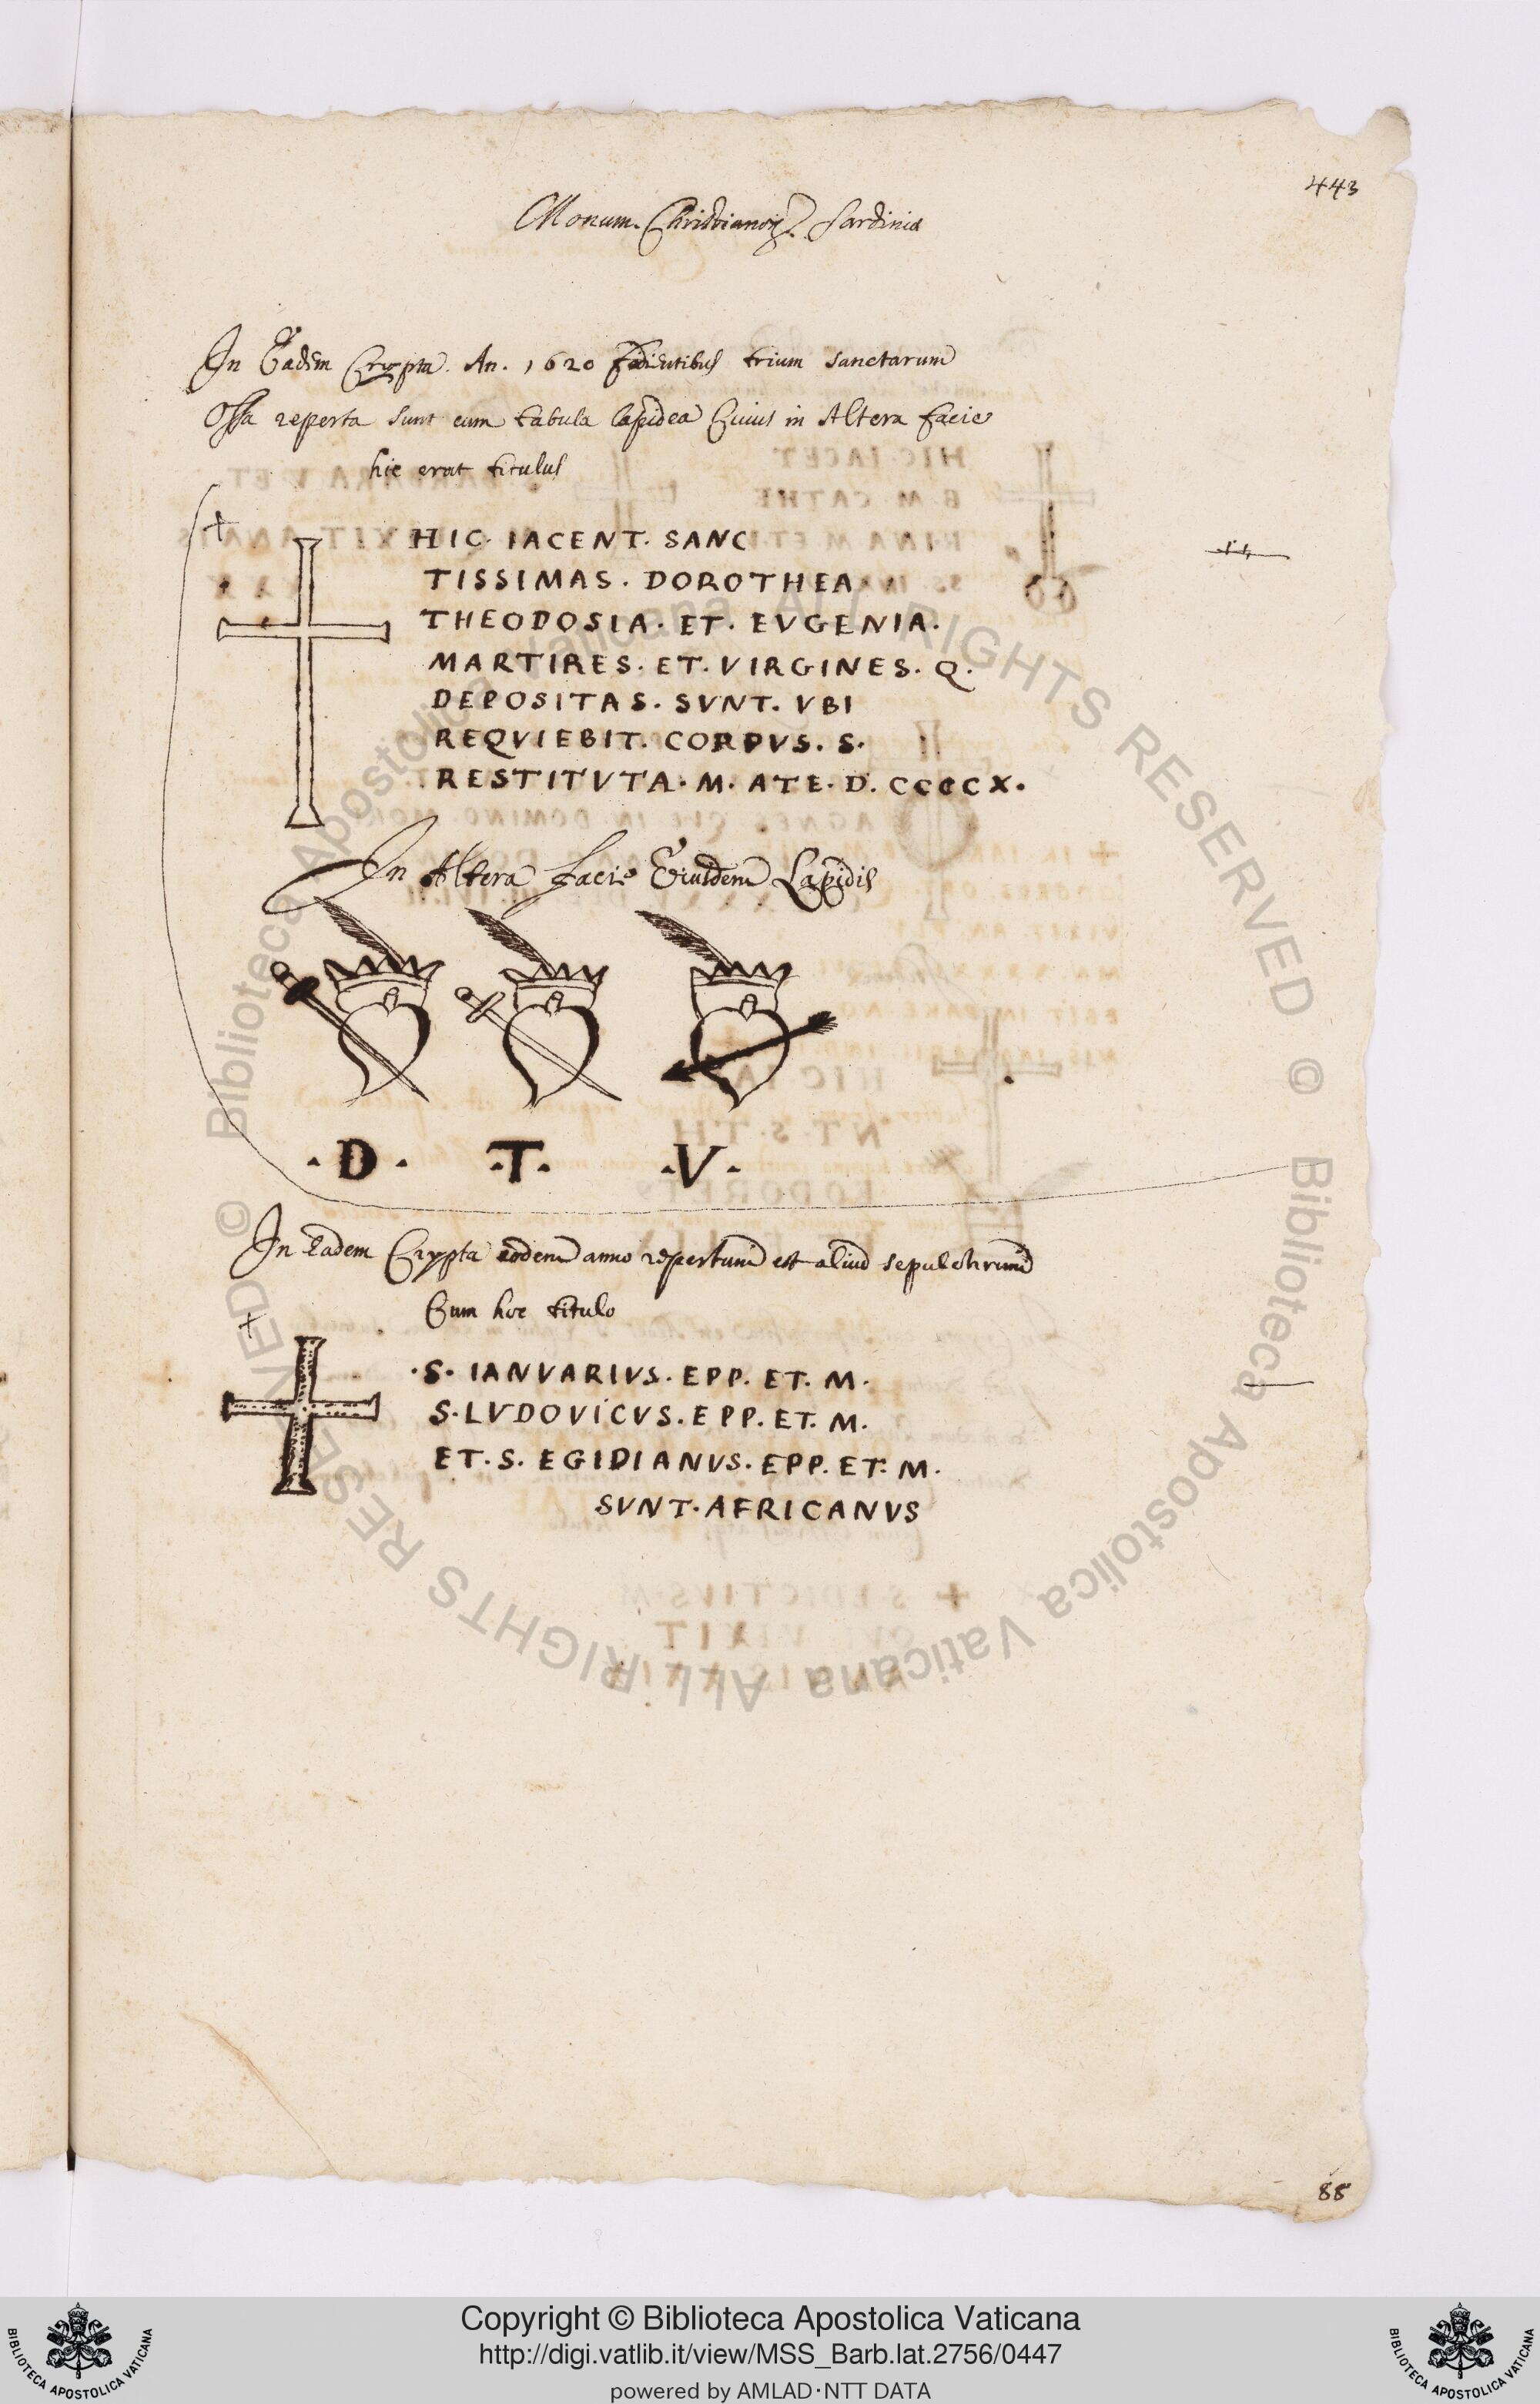 443
Monum. Christianor. Sardinia
In Eadem Crypta. An. 1620 fodientibus trium sanctarum
Ossa reperta sunt cum tabula lapidea Cuius in Altera facie
hic erat titulus
HIC. IACENT. SANC
TISSIMAS. DOROTHEA
THEODOSIA. ET. EVGENIA.
MARTIRES. ET. VIRGINES. Q.
DEPOSITAS. SVNT. VBI
REQVIEBIT. CORPVS. S.
RESTITVTA. M. ATE. D. CCCCX.
In Altera facie Eiusdem Lapidis
.D. .T. .V.
In Eadem Crypta eodem anno repertum est aliud sepulchrum
Cum hoc titulo
.S. IANVARIVS. EPP. ET. M.
S. LVDOVICVS. EPP. ET. M.
ET. S. EGIDIANVS. EPP. ET. M.
SVNT. AFRICANVS
88
© Biblioteca Apostolica Vaticana ALL RIGHTS RESERVED
© Biblioteca Apostolica Vaticana ALL RIGHTS RESERVED
BIBLIOTECA APOSTOLICA VATICANA
Copyright © Biblioteca Apostolica Vaticana
http://digi.vatlib.it/view/MSS_Barb.lat.2756/0447
powered by AMLAD·NTT DATA
BIBLIOTECA APOSTOLICA VATICANA